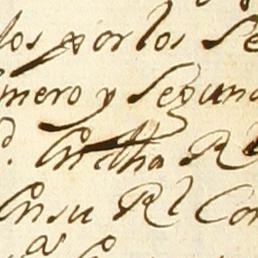 los por los Se
imero y Segund
d. En dha Rl
En su Rl Con